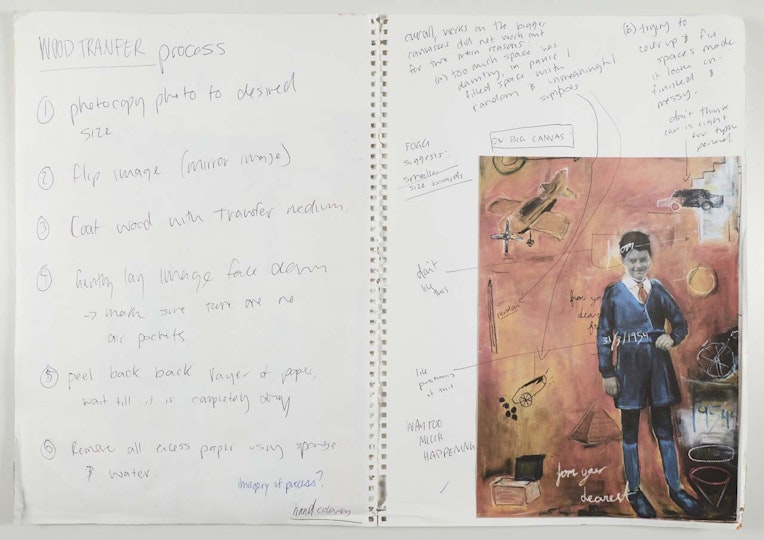 WOOD TRANFER process
① photocopy photo to desired
size
② flip image (mirror image)
③ Coat wood with transfer medium.
④ Gently lay image face down
→ make sure there are no
air pockets
⑤ peel back back layer of paper,
wait till it is completely dry
⑥ Remove all excess paper using sponge
& water.
Imagery of process?
hand colouring
overall, works on the bigger
canvases did not work out
for two main reasons
(a) too much space was
daunting, in panic I
filled space with
random & unmeaningful
symbols
(b) trying to
cover up & fill
spaces made
it look un-
finished &
messy.
don't think
car is right
for
personal.
FOGG
suggests:
smaller
size boards
ON BIG CANVAS:
don't
like
this
like
positioning
of this
WAY TOO
MUCH
HAPPENING
from you
dearest
31/3/1954
1954
from your
dearest